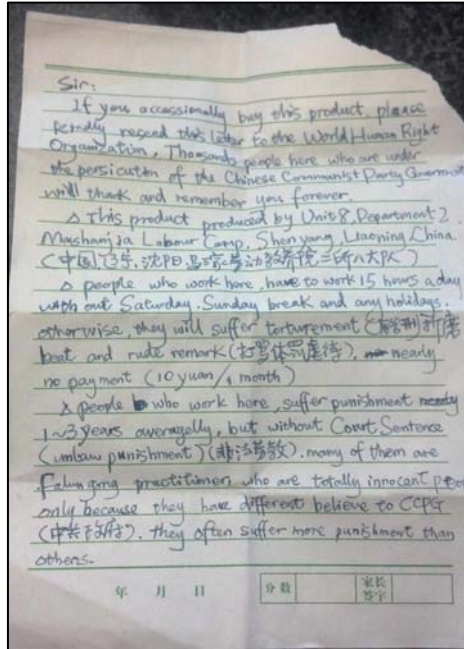 Sir:
If you occassionally buy this product, please
kindly resend this letter to the World Human Right
Organization. Thousands people here who are under
the persicution of the Chinese Communist Party Government
will thank and remember you forever.
This product produced by Unit 8, Department 2,
Mashanjia Labour Camp, Shenyang, Liaoning, China.
(中国,辽宁,沈阳马三家劳动教养院二所八大队)
people who work here, have to work 15 hours a day
with out Saturday, Sunday break and any holidays.
otherwise, they will suffer torturement
beat and rude remark (打骂体罚虐待). nearly
no payment (10 yuan/1 month)
people who work here, suffer punishment
1~3 years averagelly, but without Court Sentence
(unlaw punishment) (非法劳教). many of them are
Falun gong practitioner, who are totally innocent people
only because they have different believe to CCPG
(中共政府). they often suffer more punishment than
others.
年 月 日 分数 家长签字